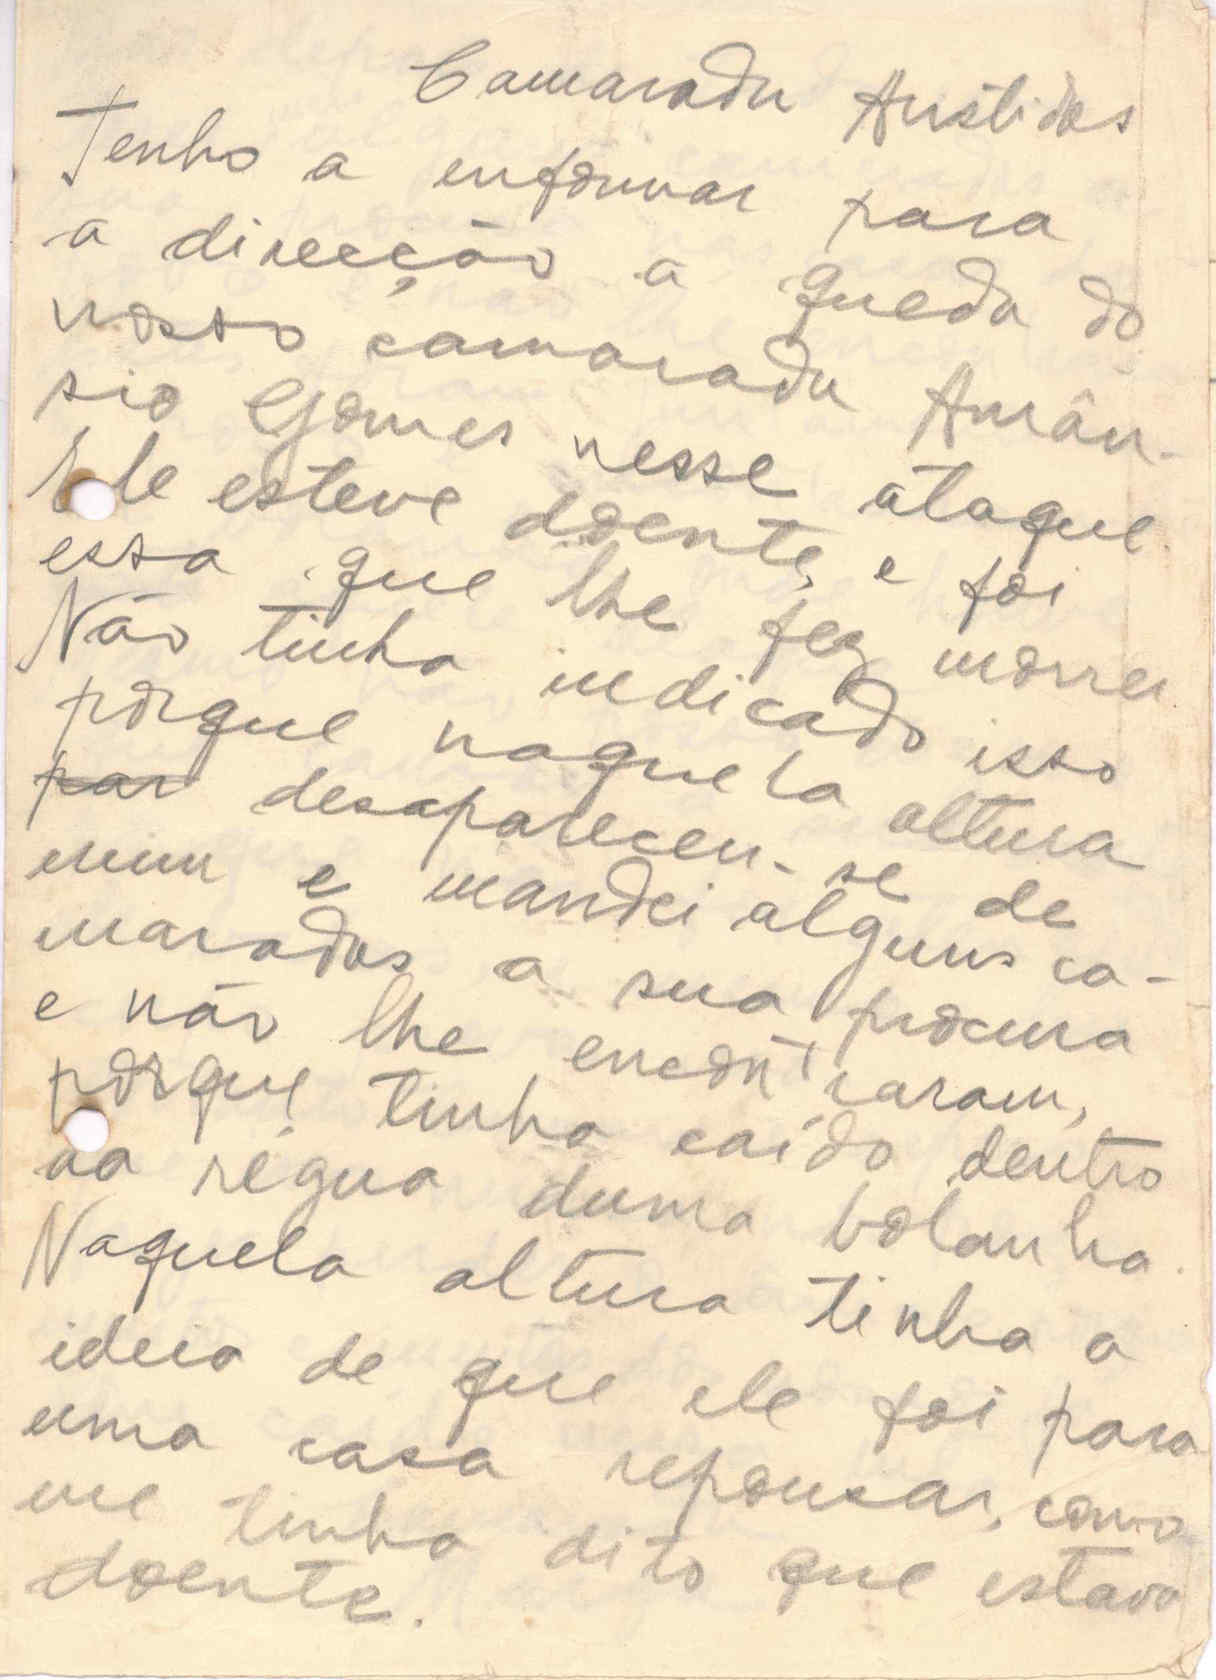 Camarada Aristides
Tenho a enformar para
a direcção a queda do
nosso camarada Amân-
sio Gomes nesse ataque.
Ele esteve doente, e foi
essa que lhe fez morrer
Não tinha indicado isso
porque naquela altura
par desapareceu-se de
mim e mandei alguns ca-
maradas a sua procura
e não lhe encontraram,
porque tinha caído dentro
da régua duma bolanha.
Naquela altura tinha a
ideia de que ele foi para
uma casa repousar, como
me tinha dito que estava
doente.